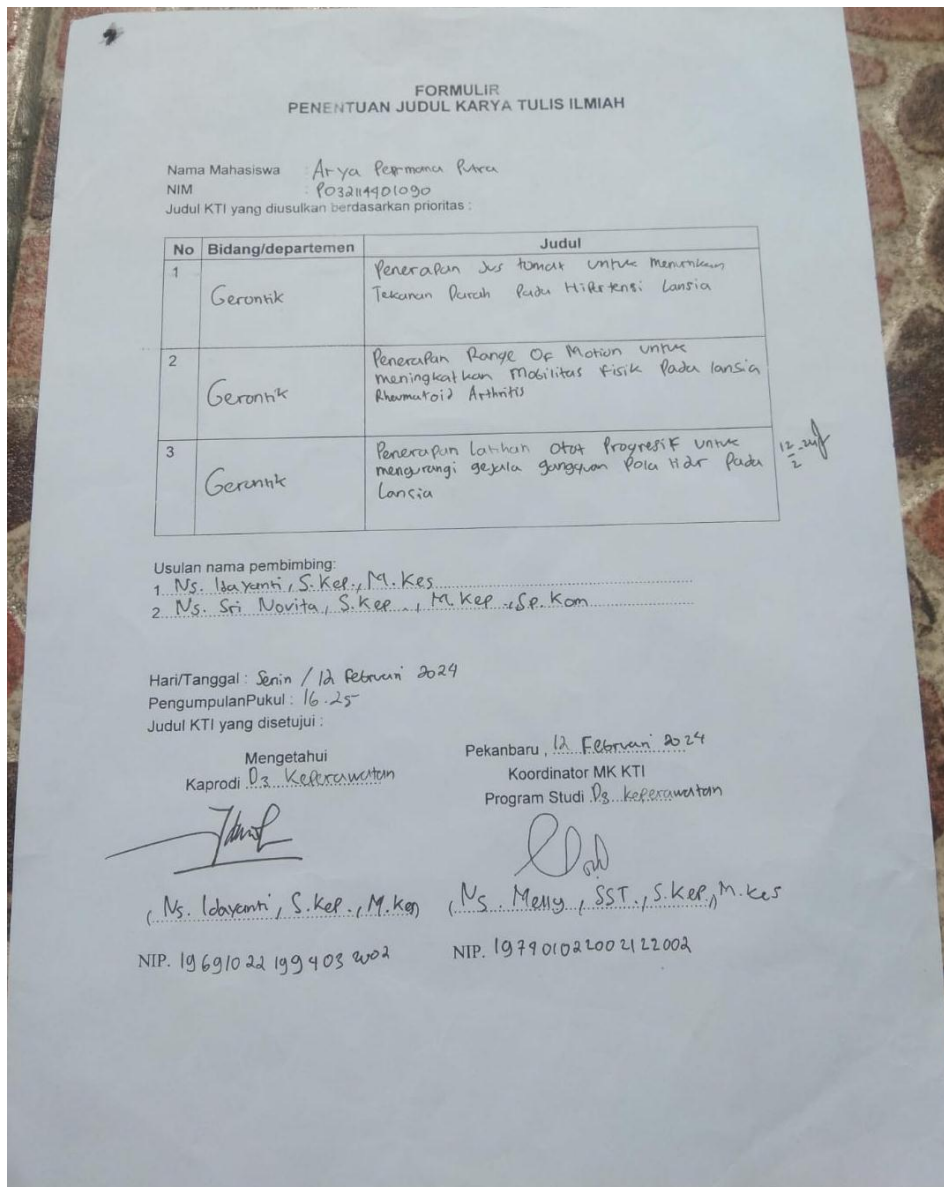 FORMULIR
PENENTUAN JUDUL KARYA TULIS ILMIAH
Nama Mahasiswa : Arya Permana Putra
NIM : P032114401090
Judul KTI yang diusulkan berdasarkan prioritas :
No Bidang/departemen Judul
1 Gerontik Penerapan Jus tomat untuk menurunkan
Tekanan Darah Pada Hipertensi Lansia
2 Gerontik Penerapan Range Of Motion untuk
meningkatkan Mobilitas fisik Pada lansia
Rheumatoid Arthritis
3 Gerontik Penerapan latihan Otot Progresif untuk
mengurangi gejala gangguan Pola tidur Pada
Lansia
12/2-24
Usulan nama pembimbing:
1 Ns. Idayanti, S.Kep., M.Kes
2 Ns. Sri Novita, S.Kep., M.Kep., Sp.Kom
Hari/Tanggal : Senin / 12 Februari 2024
PengumpulanPukul : 16.25
Judul KTI yang disetujui :
Mengetahui
Kaprodi D3 Keperawatan
Pekanbaru, 12 Februari 2024
Koordinator MK KTI
Program Studi D3 Keperawatan
(Ns. Idayanti, S.Kep., M.Kes)
(Ns. Melly, SST., S.Kep., M.Kes
NIP. 19691022 199403 2002
NIP. 197901022002122002